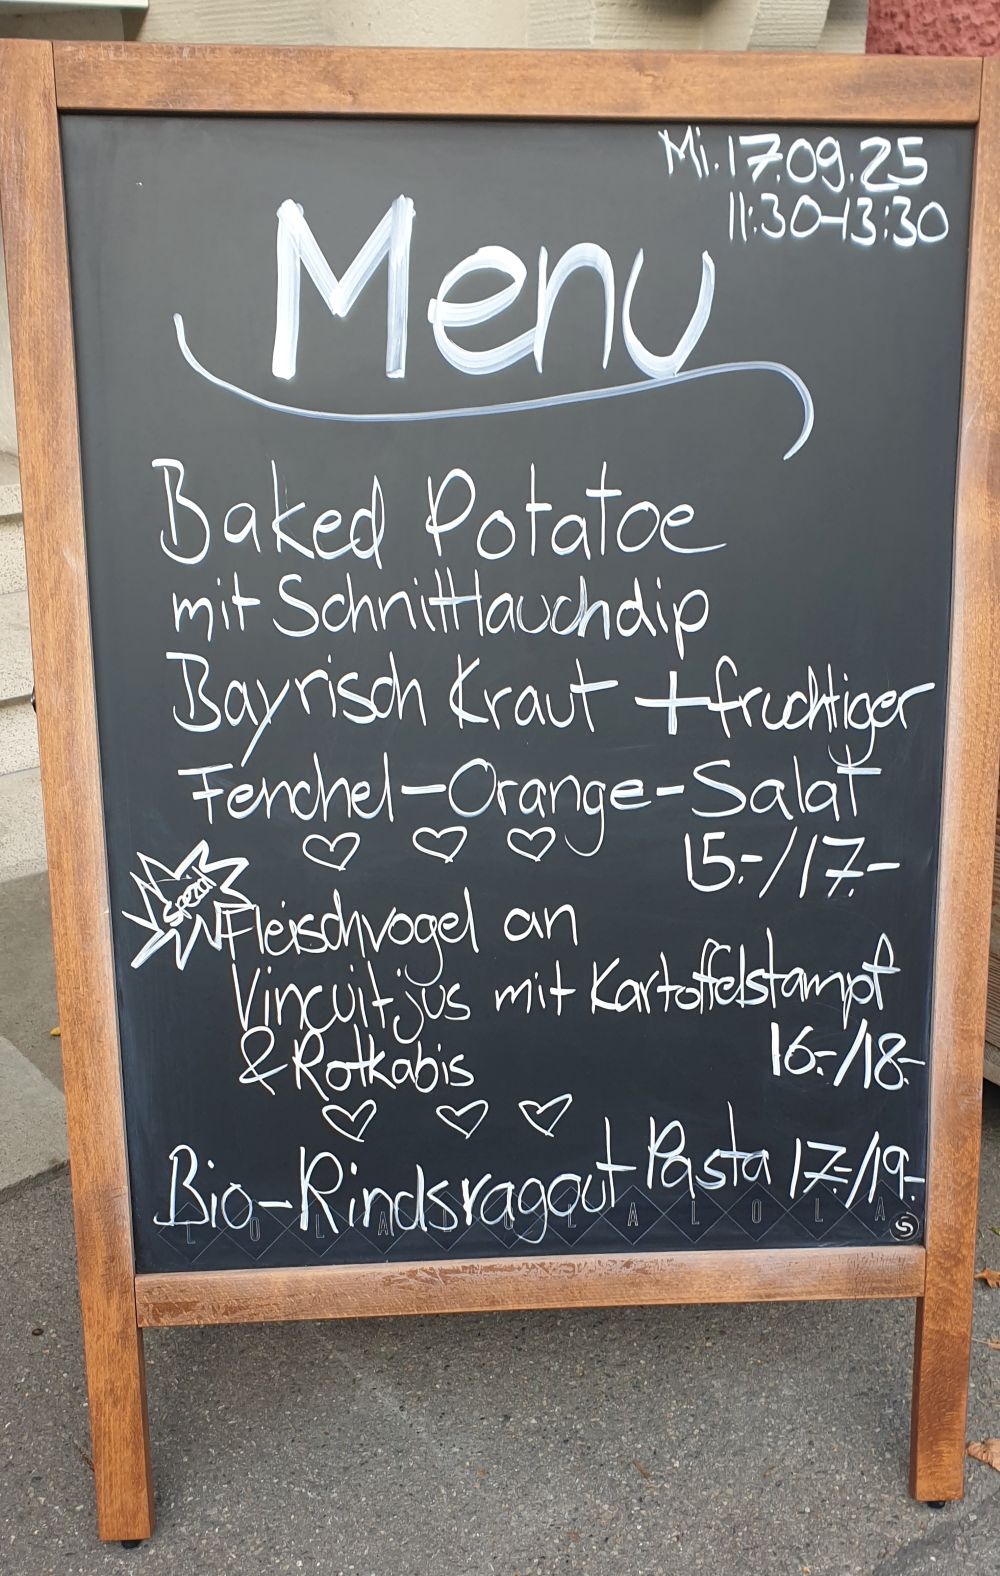 Mi. 17.09.25
11:30-13:30
Menu
Baked Potatoe
mit Schnittlauchdip
Bayrisch Kraut + fruchtiger
Fenchel-Orange-Salat
15.-/17.-
Spezial
Fleischvogel an
Vincuitjus mit Kartoffelstampf
& Rotkabis
16.-/18.-
Bio-Rindsragout Pasta 17.-/19.-
LOLA LOLA LOLA